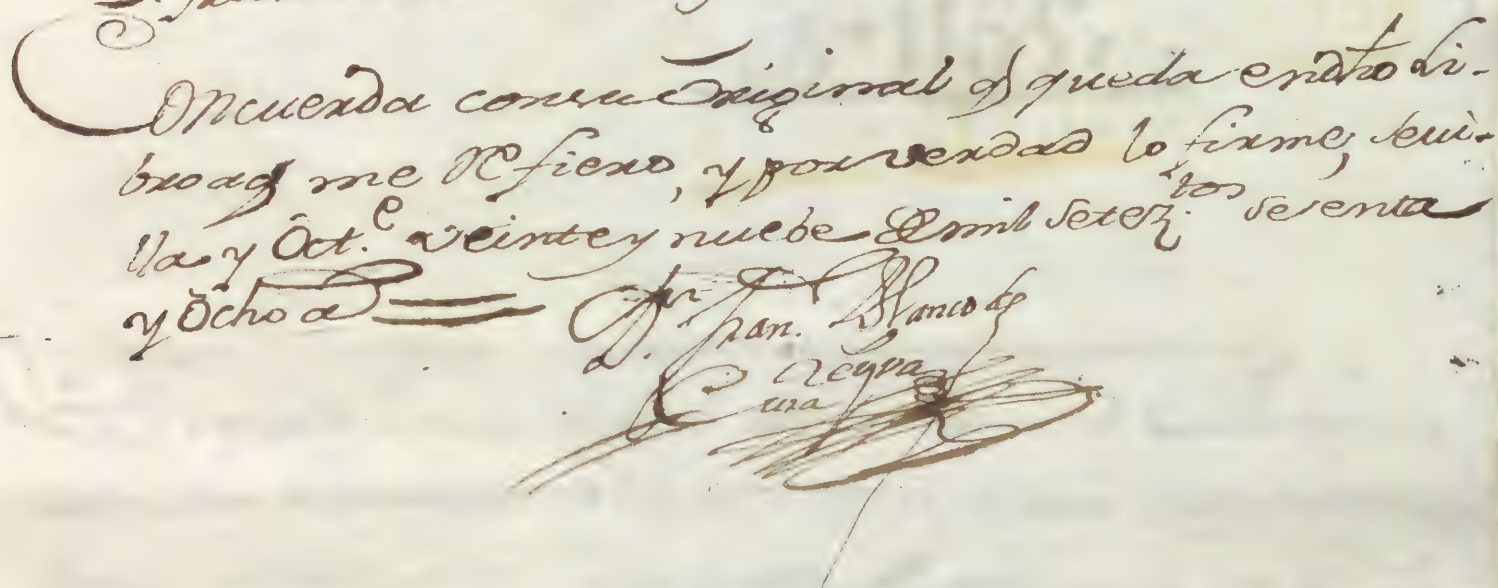 Concuerda con su Original q̃ queda en dĥo Li-
bro a q̃ me Refiero, y por verdad lo firmé, Sevi-
lla y Oct.e veinte y nuebe de mil Setez.tos sesenta
y Ocho a =
Fran. Blanco de
Reyna
Cura